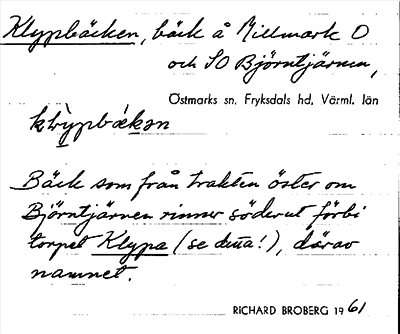 Klypbäcken, bäck å Millmark O
och SO Björntjärnen,
Östmarks sn, Fryksdals hd, Värml. län
Bäck som från trakten öster om
Björntjärnen rinner söderut förbi
torpet Klypa (se detta!), därav
namnet.
RICHARD BROBERG 1961